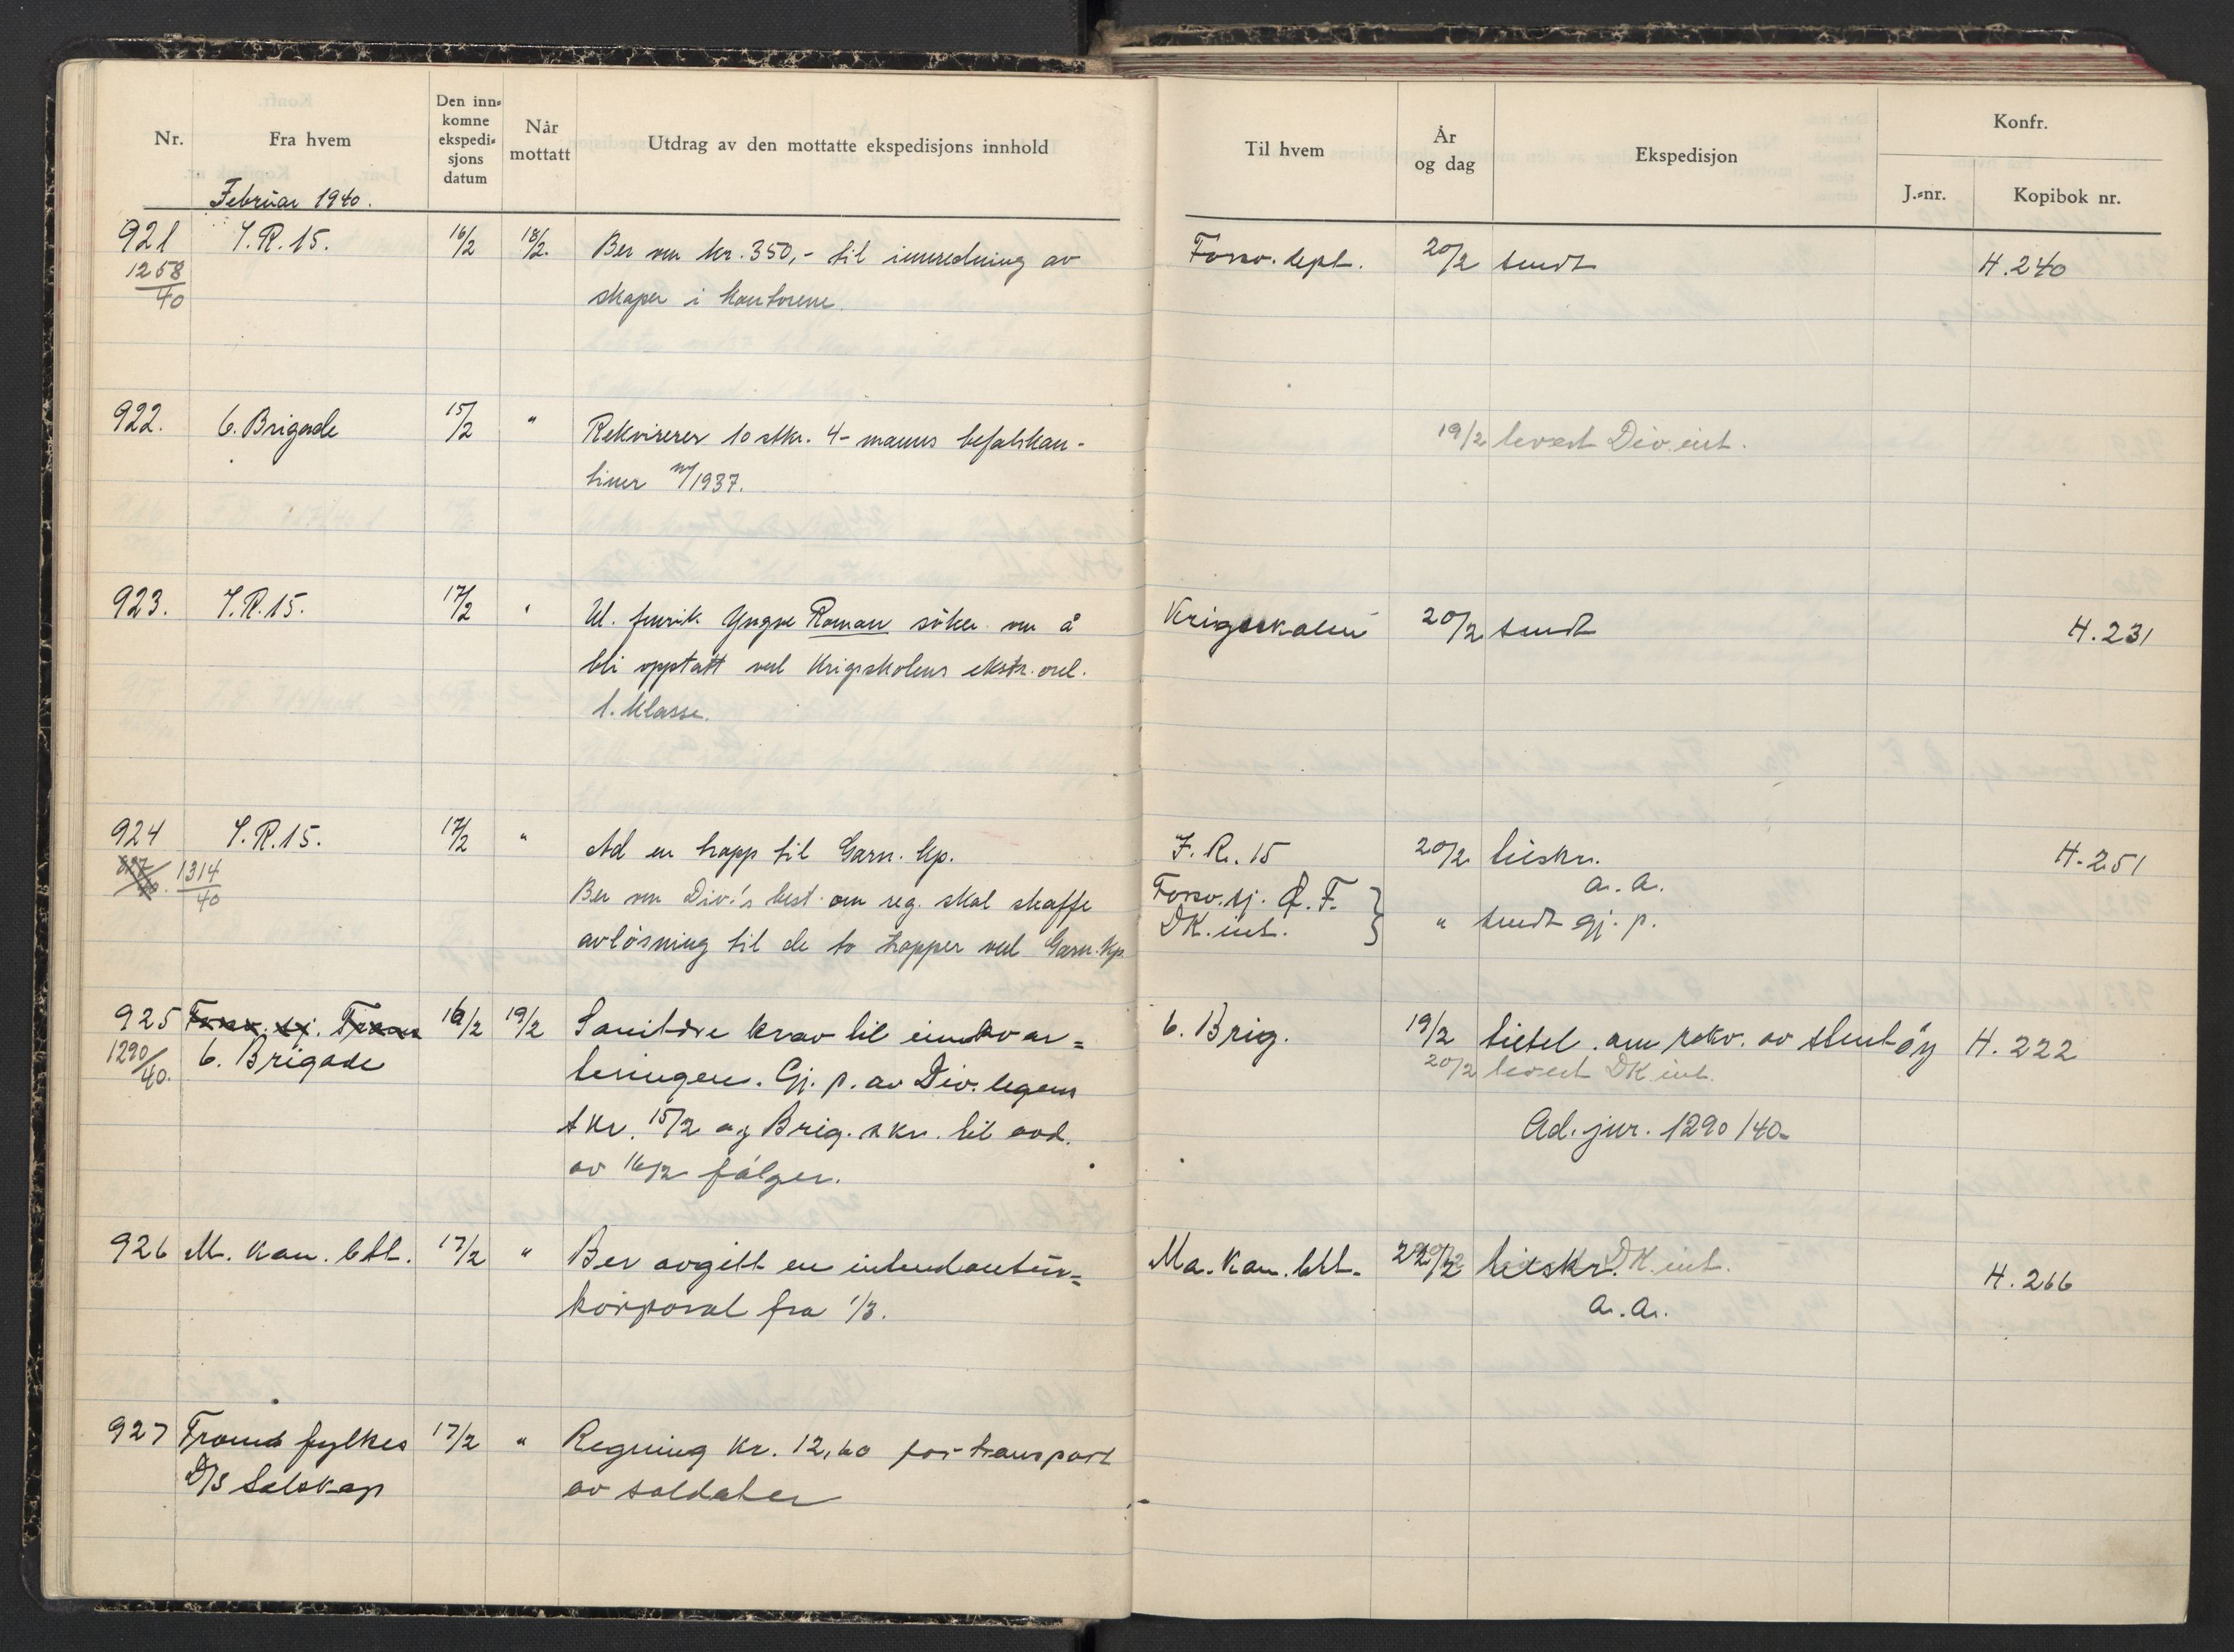 Nr.
Fra hvem
Den inn-
komne
ekspedi-
sjons
datum
Når
mottatt
Utdrag av den mottatte ekspedisjons innhold
Til hvem
År
og dag
Ekspedisjon
Konfr.
J.-nr.
Kopibok nr.
Februar 1940.
921 I.R.15. 16/2 18/2. Ber om kr. 350,- til innredning av
1258/40
skaper i kontorene.
Forsv. dept. 20/2 sendt H. 240
922. 6. Brigade 15/2 " Rekvirerer 10 stkr. 4-manns befalskan-
tiner m/1937.
19/2 levert Div.int.
923. I.R.15. 17/2 " Ul. fenrik Yngve Roman söker om å
bli opptatt ved Krigsskolens ekstr. ord.
1. klasse.
Krigsskolen 20/2 sendt H. 231
924 I.R.15. 17/2 " Ad en trapp til Garn. kp.
1314/40
Ber om Div's best. om reg. skal skaffe
avlösning til de to trapper ved Garn. kp.
I.R. 15 20/2 tilskr. H. 251
a. a.
DK. int. " sendt gj. p.
925 6. Brigade 16/2 19/2 Sanitære krav til innkvar=
1290/40.
teringen. Gj. p. av Div. legens
skr. 15/2 og Brig. skr. til avd.
av 16/2 følger.
6. Brig. 19/2 titel. om rekv. av stentöy H. 222
20/2 levert DK int.
Ad. jnr. 1290/40.
926 M. kan. btl. 17/2 " Ber avgitt en intendantur=
korporal fra 1/3.
Ma. kan. btl. tilskr. DK. int. H. 266
a. a.
927 Troms fylkes 17/2 " Regning kr. 12,60 for transport
D/S Selskap
av soldater